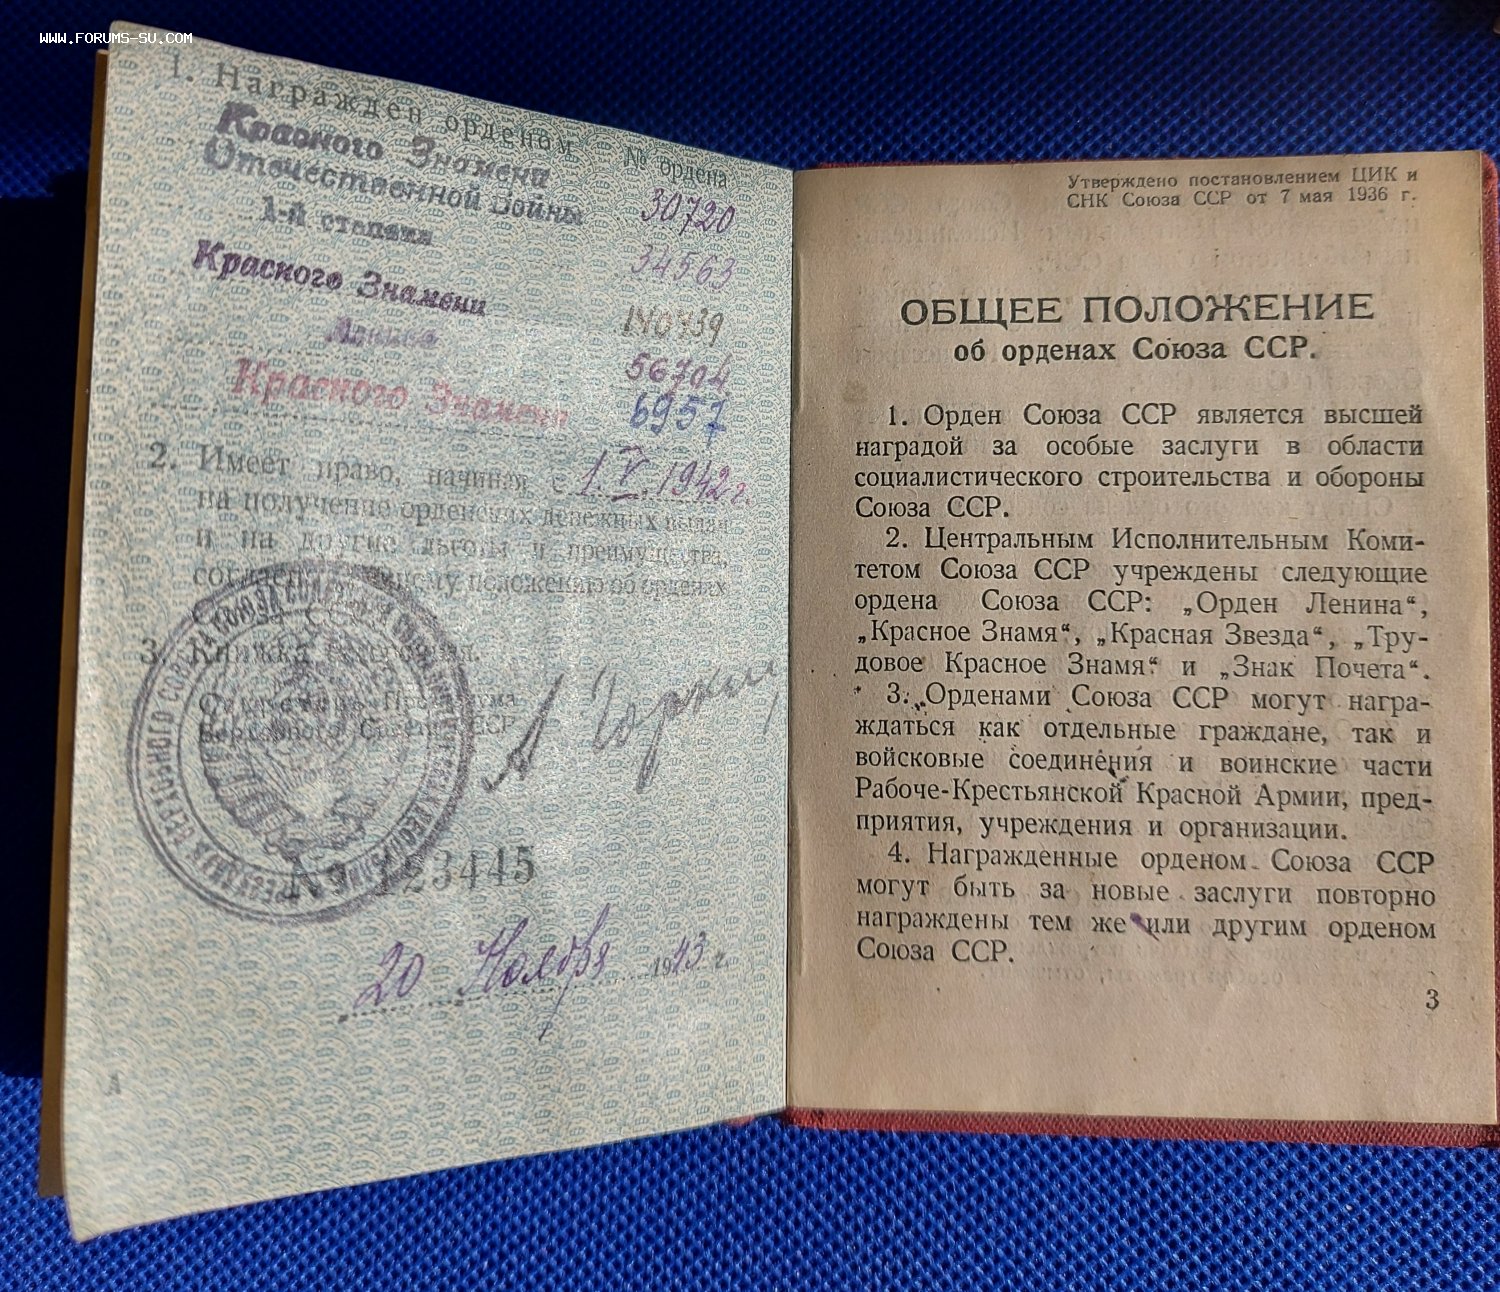 WWW.FORUMS-SU.COM
1. Награжден орденом № ордена
Красного Знамени 30720
Отечественной Войны
1-й степени 34563
Красного Знамени 140739
Ленина 56704
Красного Знамени 6957
2. Имеет право, начиная с 1.V.1942 г.
на получение орденских денежных выдач
и на другие льготы и преимущества,
согласно общему положению об орденах
Союза ССР.
3. Книжка бессрочная.
Секретарь Президиума
Верховного Совета СССР
А Горкин
№ 123445
20 Ноября 1943 г.
А
Утверждено постановлением ЦИК и
СНК Союза ССР от 7 мая 1936 г.
ОБЩЕЕ ПОЛОЖЕНИЕ
об орденах Союза ССР.
1. Орден Союза ССР является высшей
наградой за особые заслуги в области
социалистического строительства и обороны
Союза ССР.
2. Центральным Исполнительным Коми-
тетом Союза ССР учреждены следующие
ордена Союза ССР: „Орден Ленина“,
„Красное Знамя“, „Красная Звезда“, „Тру-
довое Красное Знамя“ и „Знак Почета“.
3. Орденами Союза ССР могут награ-
ждаться как отдельные граждане, так и
войсковые соединения и воинские части
Рабоче-Крестьянской Красной Армии, пред-
приятия, учреждения и организации.
4. Награжденные орденом Союза ССР
могут быть за новые заслуги повторно
награждены тем же или другим орденом
Союза ССР.
3